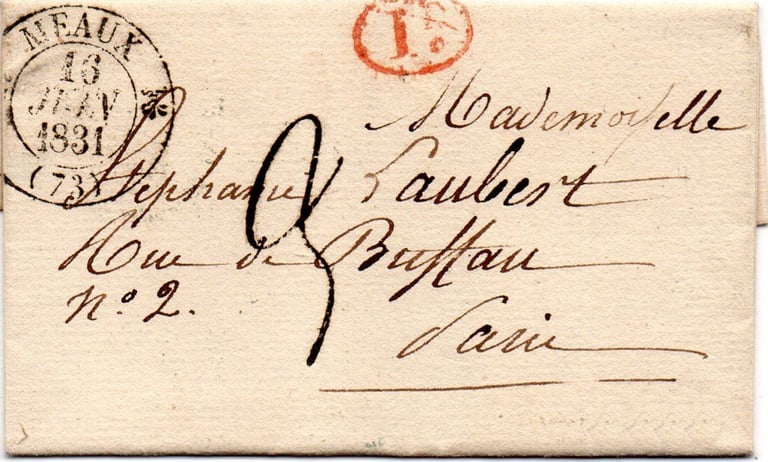 MEAUX
16
JUIN
1831
(73)
1
Mademoiselle
Stephanie Laubert
Rue de Buffau
nº 2.
Paris
3